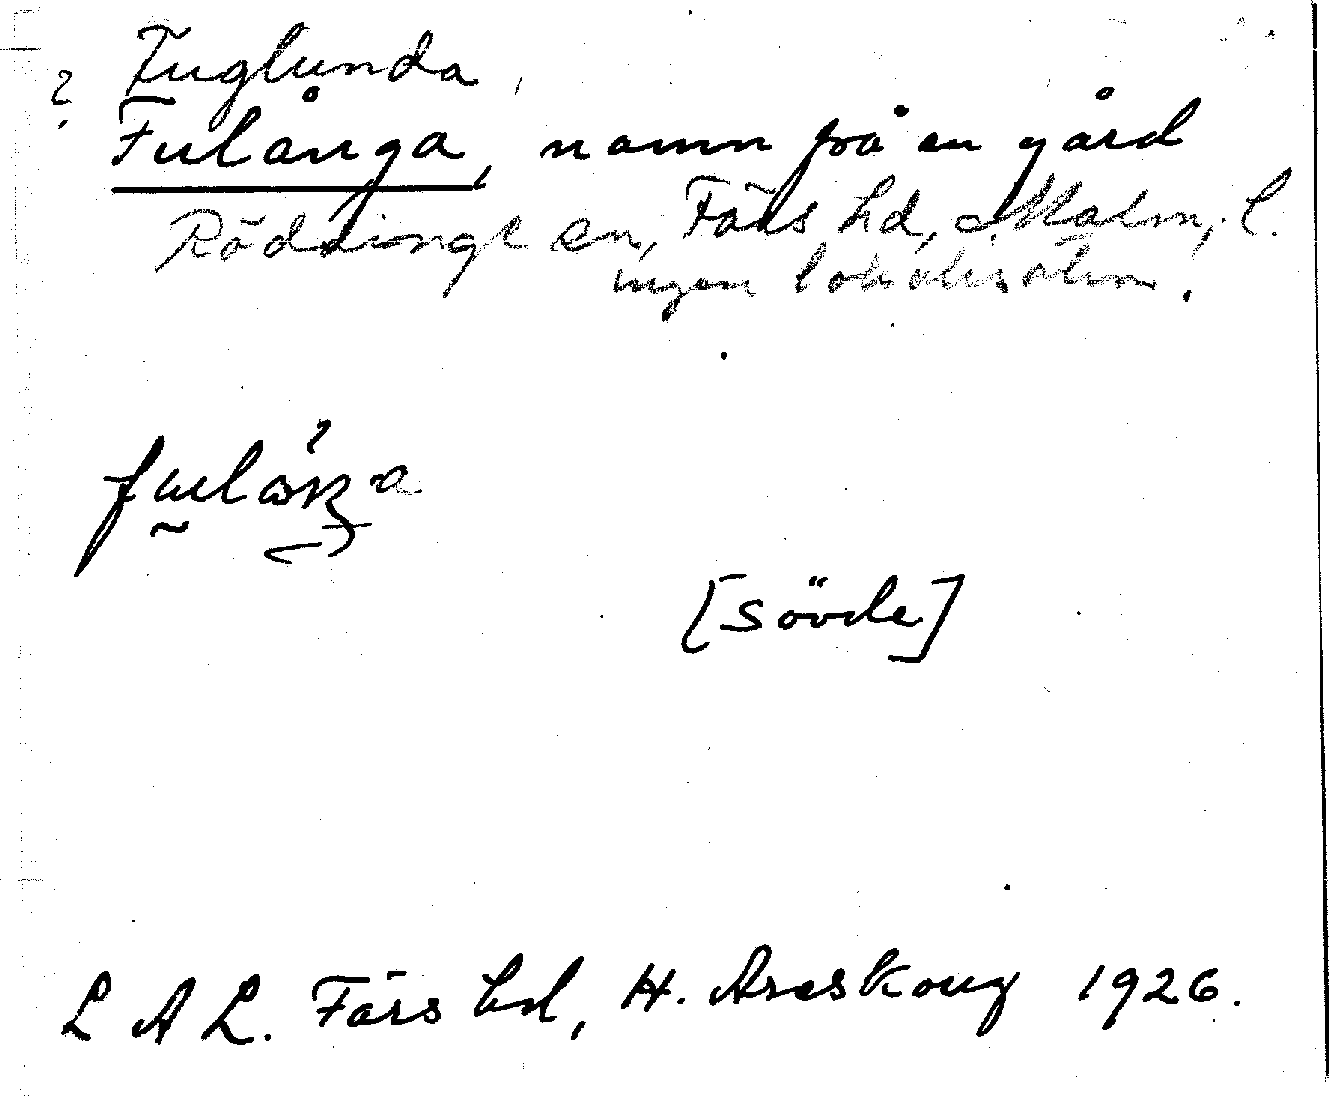 ? Fuglunda,
Fulånga, namn på en gård
Röddinge sn, Färs hd, Malm. l.
ingen lokalisation.
[Sövde]
L A L. Färs hd, H. Areskoug 1926.